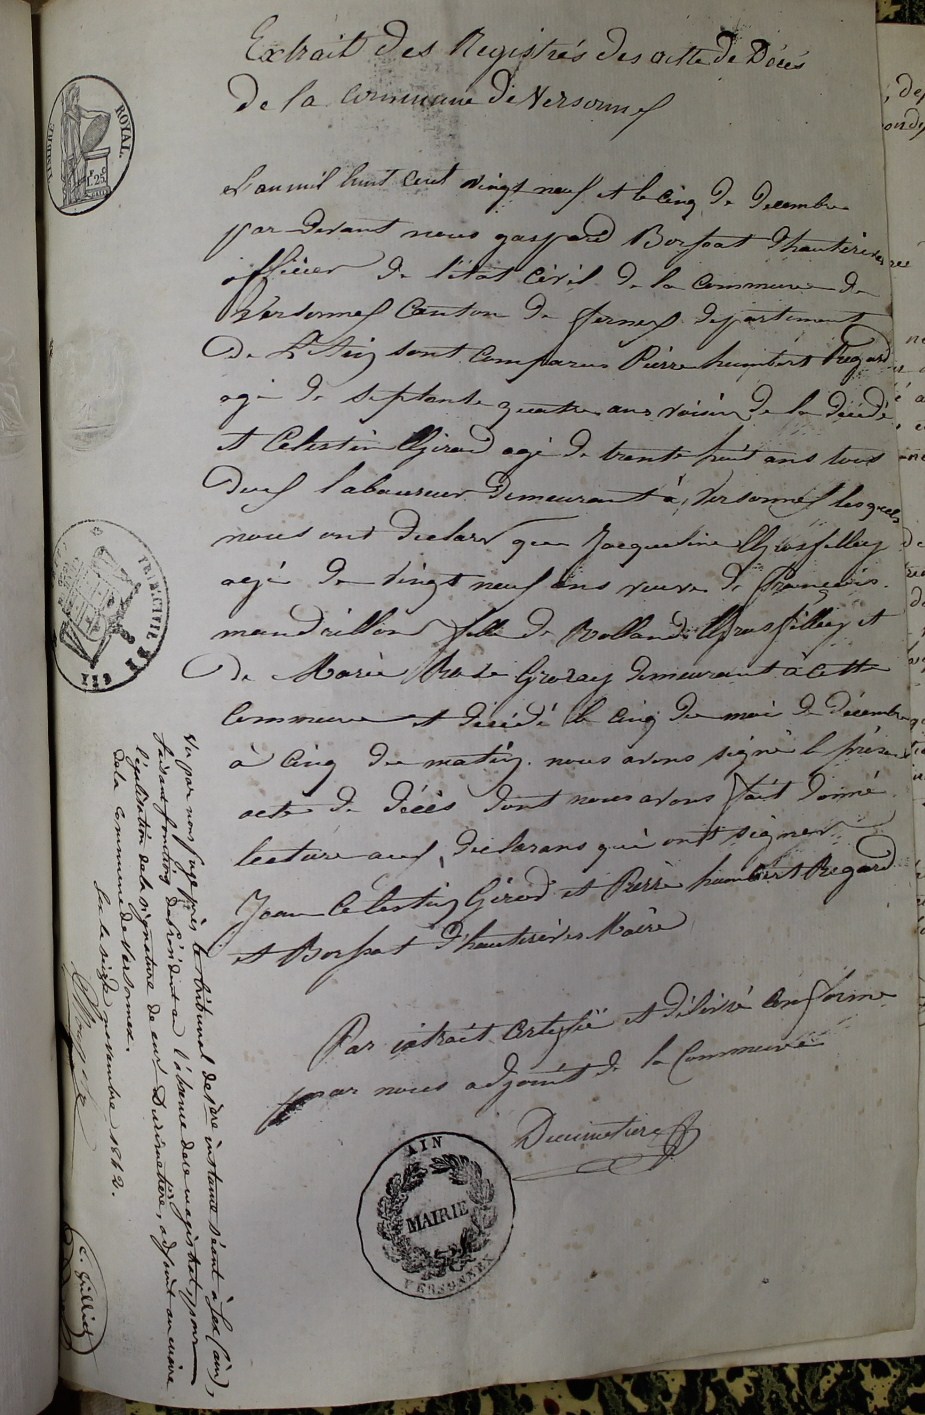 Extrait des Registrés des acte de Décés
de la commune de Versonnex
TIMBRE ROYAL
L'an mil huit cent vingt neuf et le cinq de decembre
par devant nous gaspard Borssat d'hauterives
officier de l'état civil de la commune de
Versonnex Canton de fernex departement
De L'Ain sont comparus Pierre humbert Regard
agé de septante quatre ans voisin de la décédé
et Celestin Girod agé de trente huit ans tous
deux laboureur demeurant à Versonnex lesquels
nous ont declaré que Jacqueline Grosfilley
agé de vingt neuf ans veuve de François
mandrillon fille de Rolland Grosfilley et
de Marie Rose demeurant à cette
Commune et decédé le cinq du moi de décembre
à cinq du matin. nous avons signé le présent
acte de décès dont nous avons fait donné
lecture aux declarans qui ont signer
Jean Celestin Girod et Pierre humbert Regard
et Borssat d'hauterives Maire
Par extrait certifié et délivré conforme
par nous adjoint de la Commune
Dumetier
AIN
MAIRIE
VERSONNEX
TRIB. CIVIL
Vu par nous juge près le tribunal de 1ere instance séant à Gex (ain),
faisant fonctions de Président à l'absence de ce magistrat, pour
légalisation de la signature de Mr Dumetier, adjoint au maire
de la commune de Versonnex.
Gex le seize novembre 1842.